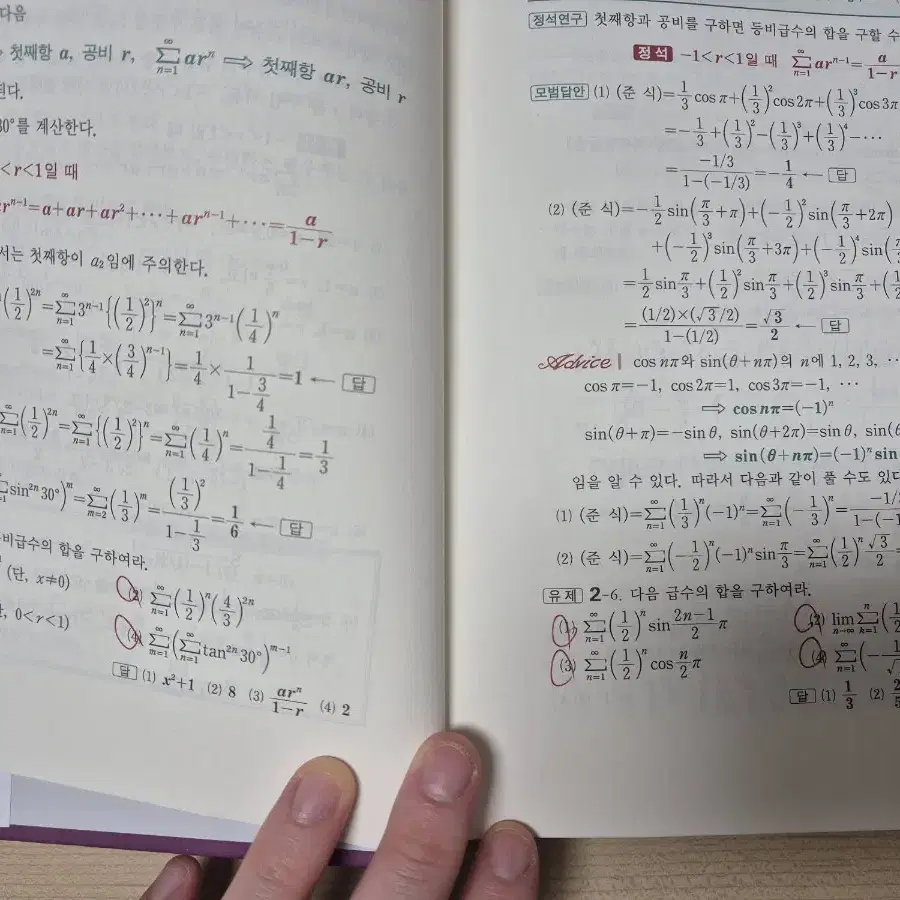 다음
첫째항 a, 공비 r, \sum_{n=1}^{∞} ar^n ⟹ 첫째항 ar, 공비 r
된다.
30°를 계산한다.
<r<1일 때
ar^{n-1}=a+ar+ar^2+···+ar^{n-1}+···=\frac{a}{1-r}
서는 첫째항이 a_2임에 주의한다.
(\frac{1}{2})^{2n}=\sum_{n=1}^{∞}3^{n-1}{(\frac{1}{2})^2}^n=\sum_{n=1}^{∞}3^{n-1}(\frac{1}{4})^n
=\sum_{n=1}^{∞}{\frac{1}{4}×(\frac{3}{4})^{n-1}}=\frac{1}{4}×\frac{1}{1-\frac{3}{4}}=1 ← 답
\sum_{n=1}^{∞}(\frac{1}{2})^{2n}=\sum_{n=1}^{∞}{(\frac{1}{2})^2}^n=\sum_{n=1}^{∞}(\frac{1}{4})^n=\frac{\frac{1}{4}}{1-\frac{1}{4}}=\frac{1}{3}
sin^{2n}30°)^m=\sum_{m=2}^{∞}(\frac{1}{3})^m=\frac{(\frac{1}{3})^2}{1-\frac{1}{3}}=\frac{1}{6} ← 답
비급수의 합을 구하여라.
(단, x≠0)
(2) \sum_{n=1}^{∞}(\frac{1}{2})^n(\frac{4}{3})^{2n}
0<r<1)
(4) \sum_{m=1}^{∞}(\sum_{n=1}^{∞}tan^{2n}30°)^{m-1}
답 (1) x^2+1 (2) 8 (3) \frac{ar^n}{1-r} (4) 2
정석연구 첫째항과 공비를 구하면 등비급수의 합을 구할 수
정석 -1<r<1일 때 \sum_{n=1}^{∞}ar^{n-1}=\frac{a}{1-r}
모범답안 (1) (준 식)=\frac{1}{3}cos π+(\frac{1}{3})^2cos 2π+(\frac{1}{3})^3cos 3π
=-\frac{1}{3}+(\frac{1}{3})^2-(\frac{1}{3})^3+(\frac{1}{3})^4-···
=\frac{-1/3}{1-(-1/3)}=-\frac{1}{4} ← 답
(2) (준 식)=-\frac{1}{2}sin(\frac{π}{3}+π)+(-\frac{1}{2})^2sin(\frac{π}{3}+2π)
+(-\frac{1}{2})^3sin(\frac{π}{3}+3π)+(-\frac{1}{2})^4sin(\frac{π}{3}
=\frac{1}{2}sin\frac{π}{3}+(\frac{1}{2})^2sin\frac{π}{3}+(\frac{1}{2})^3sin\frac{π}{3}+
=\frac{(1/2)×(√3/2)}{1-(1/2)}=\frac{√3}{2} ← 답
Advice | cos nπ와 sin(θ+nπ)의 n에 1, 2, 3, ··
cos π=-1, cos 2π=1, cos 3π=-1, ···
⟹ cos nπ=(-1)^n
sin(θ+π)=-sin θ, sin(θ+2π)=sin θ, sin(
⟹ sin(θ+nπ)=(-1)^n sin
임을 알 수 있다. 따라서 다음과 같이 풀 수도 있다
(1) (준 식)=\sum_{n=1}^{∞}(\frac{1}{3})^n(-1)^n=\sum_{n=1}^{∞}(-\frac{1}{3})^n=
(2) (준 식)=\sum_{n=1}^{∞}(-\frac{1}{2})^n(-1)^n sin\frac{π}{3}=\sum_{n=1}^{∞}(\frac{1}{2})^n\frac{√3}{2}=
유제 2-6. 다음 급수의 합을 구하여라.
(1) \sum_{n=1}^{∞}(\frac{1}{2})^n sin\frac{2n-1}{2}π
(2) lim_{n→∞}\sum_{k=1}^{n}(
(3) \sum_{n=1}^{∞}(\frac{1}{2})^n cos\frac{n}{2}π
(4) \sum_{n=1}^{∞}(-
답 (1) \frac{1}{3} (2)